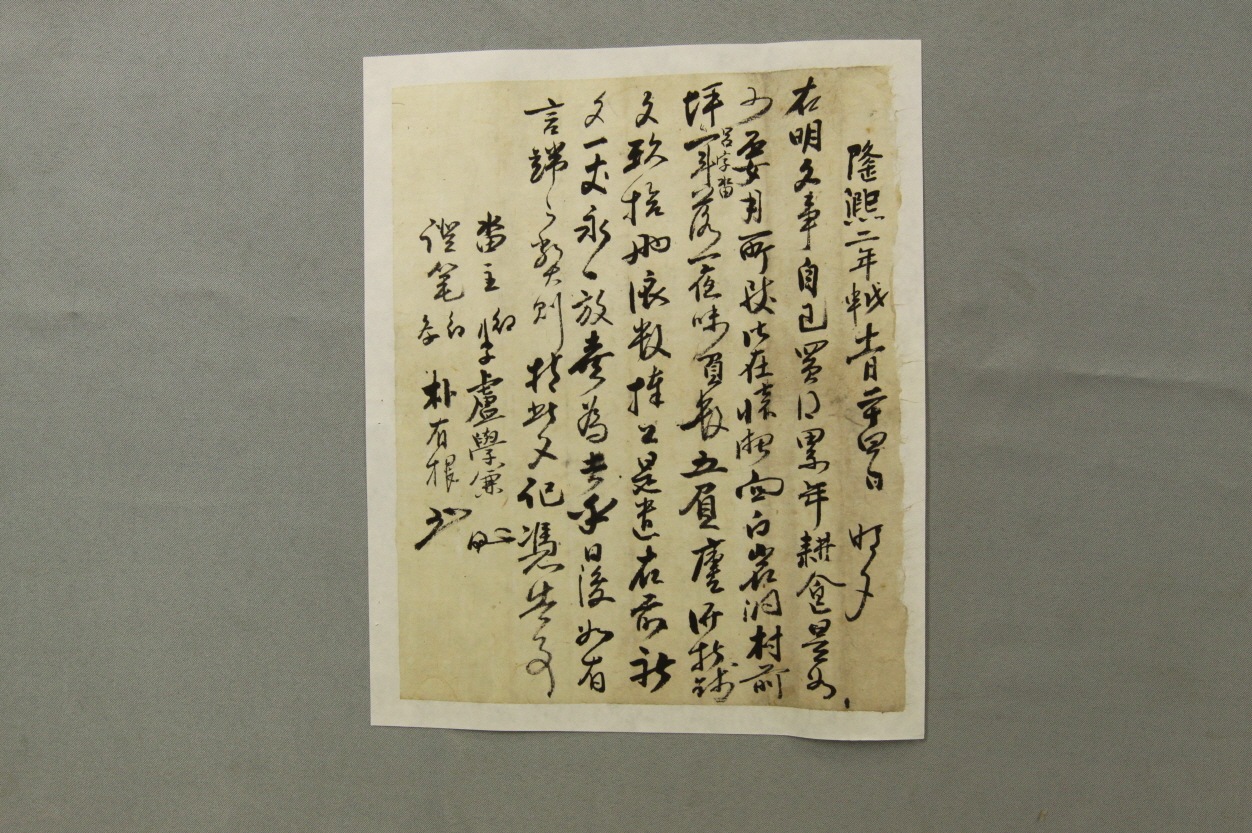 隆熙二年戊申十二月二十四日 明文
右明文事自己買得累年耕食是如
可要用所致以在長湖面白岩洞村前
坪呂字畓一斗落一夜味負數五負庫乙折錢
文玖拾兩依數捧上是遣右前新
文一丈永永放賣爲去乎日後如有
言端之弊則持此文記憑告事
畓主 幼學 盧學兼
證筆 幼學 朴有根